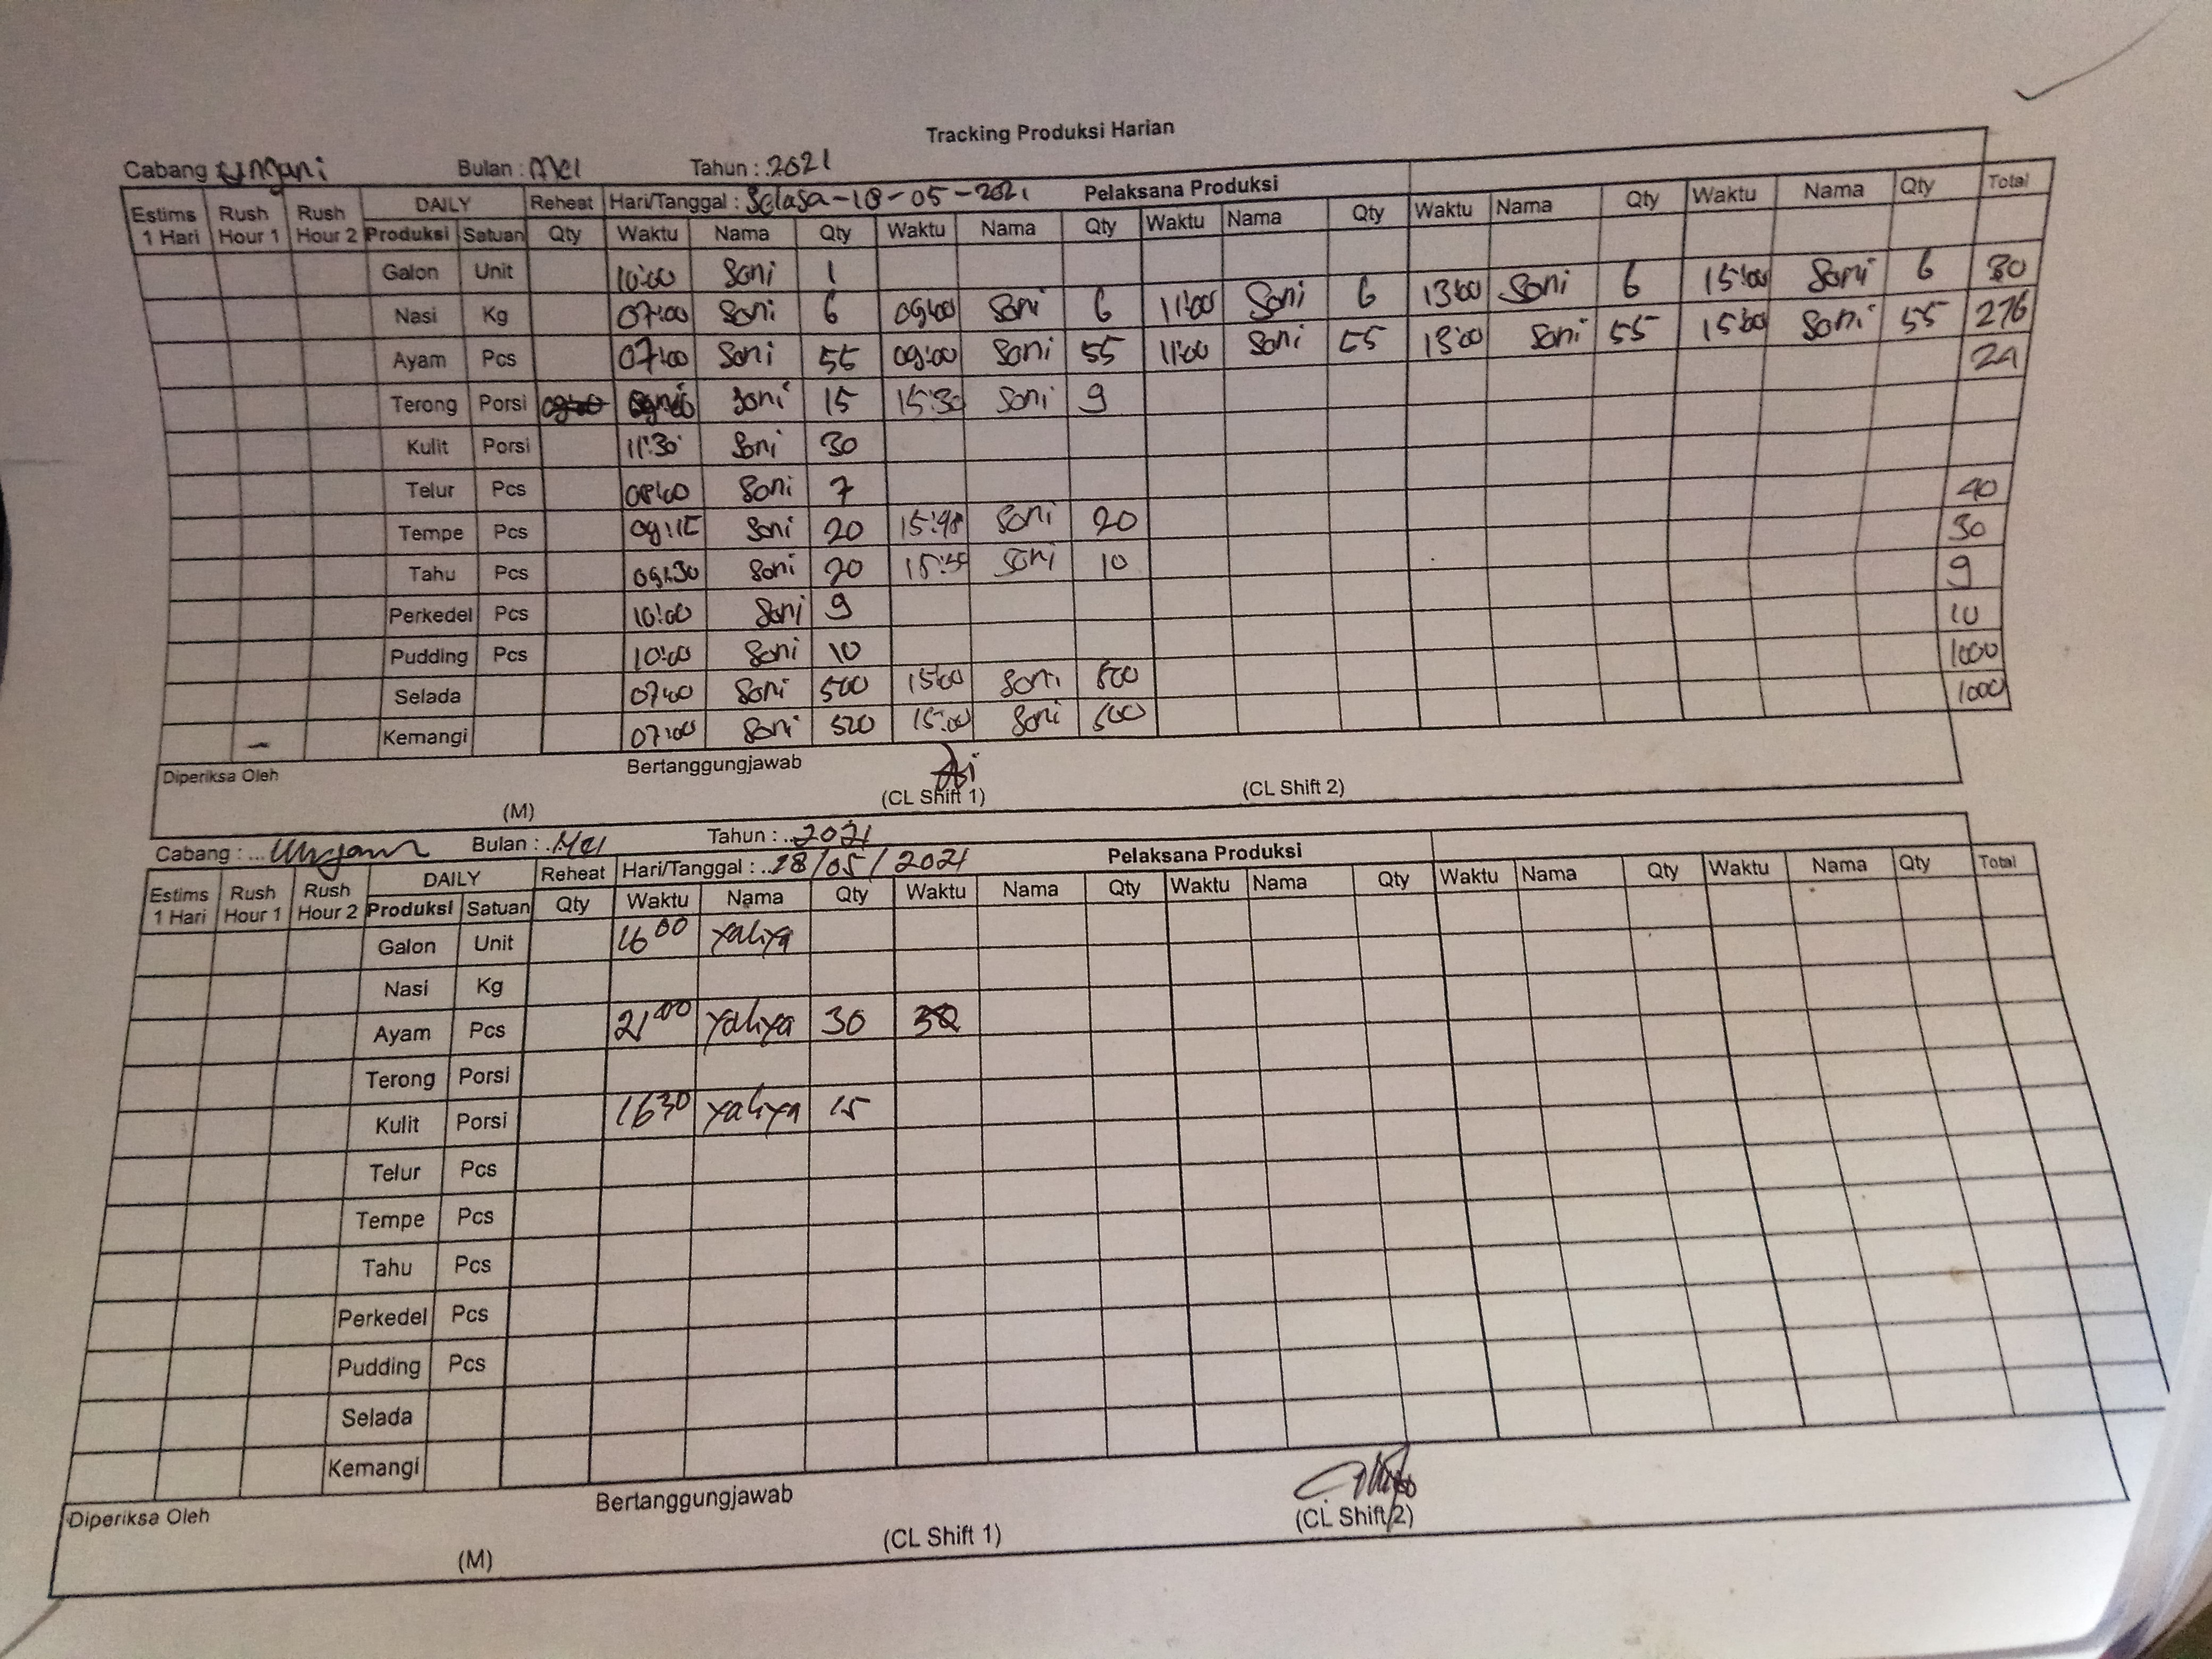 Tracking Produksi Harian
Cabang Ungani Bulan : Mei Tahun : .2021
Estims 1 Hari Rush Hour 1 Rush Hour 2 DAILY Reheat Hari/Tanggal : Selasa-18-05-2021 Pelaksana Produksi
Produksi Satuan Qty Waktu Nama Qty Waktu Nama Qty Waktu Nama Qty Waktu Nama Qty Waktu Nama Qty Total
Galon Unit 10:00 Soni 1
Nasi Kg 07:00 Soni 6 09:00 Soni 6 11:00 Soni 6 13:00 Soni 6 15:00 Soni 6 30
Ayam Pcs 07:00 Soni 55 09:00 Soni 55 11:00 Soni 55 13:00 Soni 55 15:00 Soni 55 276
Terong Porsi Soni 15 15:30 Soni 9 24
Kulit Porsi 11:30 Soni 30
Telur Pcs 08:00 Soni 7
Tempe Pcs 09:15 Soni 20 15:48 Soni 20 40
Tahu Pcs 09:30 Soni 20 Soni 10 30
Perkedel Pcs 10:00 Soni 9 9
Pudding Pcs 10:00 Soni 10 10
Selada 07:00 Soni 500 15:00 Soni 500 1000
Kemangi 07:00 Soni 520 15:00 Soni 500 1000
Diperiksa Oleh Bertanggungjawab
(M) (CL Shift 1) (CL Shift 2)
Cabang : ... Bulan : .Mei Tahun : ..2021
Estims 1 Hari Rush Hour 1 Rush Hour 2 DAILY Reheat Hari/Tanggal : ..18/05/2021 Pelaksana Produksi
Produksi Satuan Qty Waktu Nama Qty Waktu Nama Qty Waktu Nama Qty Waktu Nama Qty Waktu Nama Qty Total
Galon Unit 16 00 Yahya
Nasi Kg
Ayam Pcs 21 00 Yahya 30
Terong Porsi
Kulit Porsi 16 30 Yahya 15
Telur Pcs
Tempe Pcs
Tahu Pcs
Perkedel Pcs
Pudding Pcs
Selada
Kemangi
Diperiksa Oleh Bertanggungjawab
(M) (CL Shift 1) (CL Shift 2)